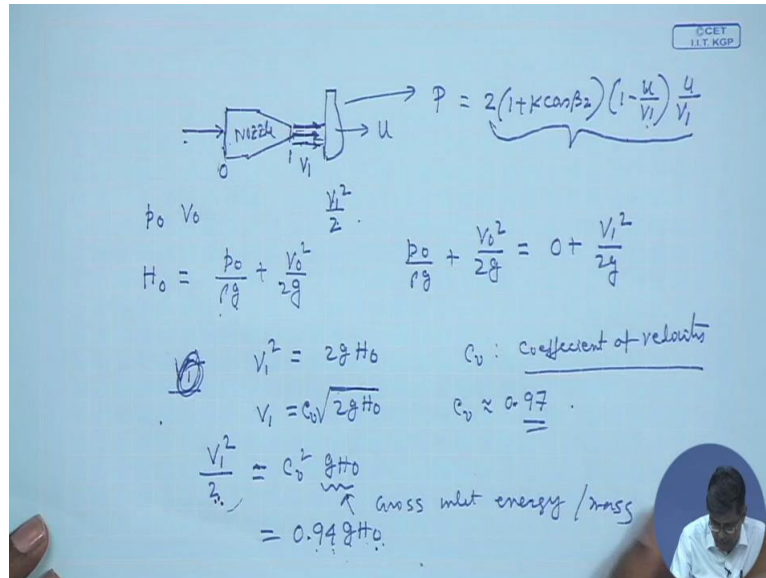 ©CET
I.I.T. KGP
P = 2(1+Kcosβ2)(1-u/V1) u/V1
Nozzle
u
0
1
V1
V1²/2 .
p0 V0
H0 = p0/ρg + V0²/2g
p0/ρg + V0²/2g = 0 + V1²/2g
V1² = 2gH0
Cv : coeffecient of velocity
V1 = Cv√2gH0
Cv ≈ 0.97 .
V1²/2 = Cv² gH0
Gross inlet energy / mass
= 0.94 gH0